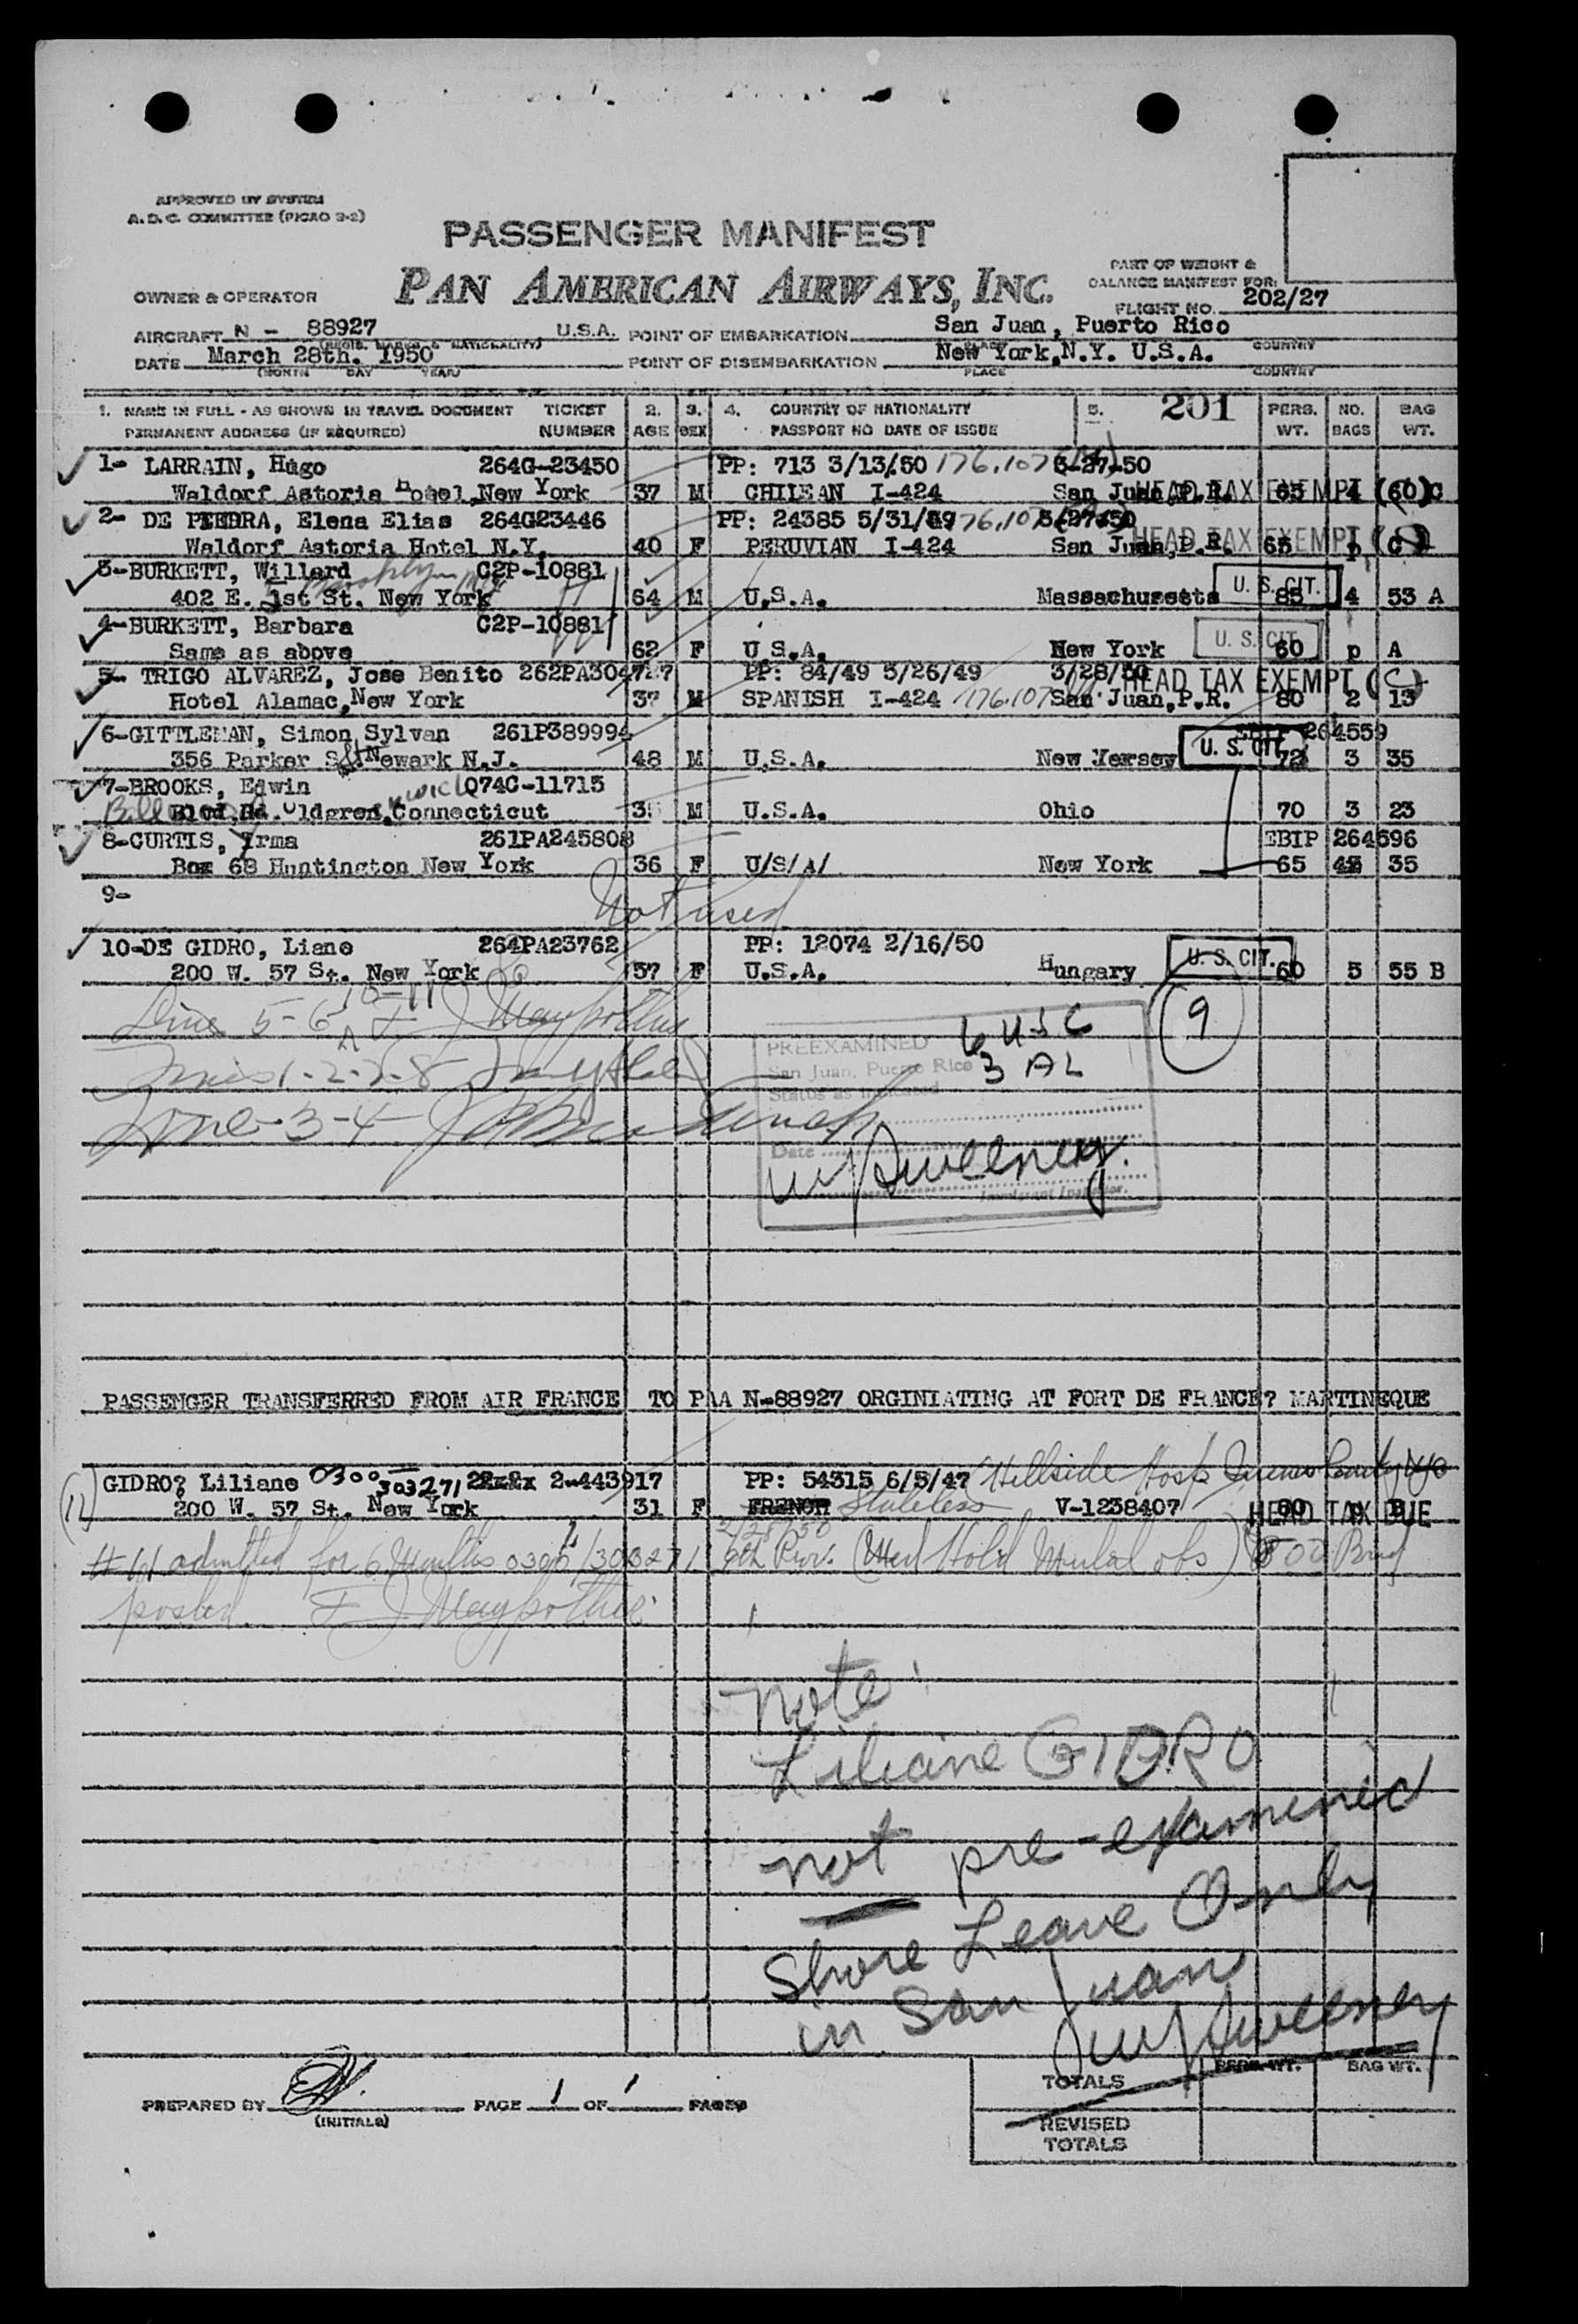 APPROVED BY SYSTEM
A. D. C. COMMITTEE (PICAO 3-2)
PASSENGER MANIFEST
PAN AMERICAN AIRWAYS, INC.
PART OF WEIGHT &
BALANCE MANIFEST FOR:
OWNER & OPERATOR
FLIGHT NO. 202/27
AIRCRAFT N - 88927 U.S.A. POINT OF EMBARKATION San Juan, Puerto Rico
(REGIS. MARKS & NATIONALITY) PLACE COUNTRY
DATE March 28th. 1950 POINT OF DISEMBARKATION New York,N.Y. U.S.A.
(MONTH DAY YEAR) PLACE COUNTRY
1. NAME IN FULL - AS SHOWN IN TRAVEL DOCUMENT TICKET 2. 3. 4. COUNTRY OF NATIONALITY 5. 201 PERS. NO. BAG
PERMANENT ADDRESS (IF REQUIRED) NUMBER AGE SEX PASSPORT NO DATE OF ISSUE WT. BAGS WT.
1- LARRAIN, Hugo 264G-23450 PP: 713 3/13/50 176.107 3-27-50
Waldorf Astoria Hotel,New York 37 M CHILEAN I-424 San Juan,P.R. HEAD TAX EXEMPT 65 4 (60)C
2- DE PIEDRA, Elena Elias 264G23446 PP: 24385 5/31/49 176.107 3/27/50
Waldorf Astoria Hotel N.Y. 40 F PERUVIAN I-424 San Juan,P.R. HEAD TAX EXEMPT 65 p C
3-BURKETT, Willard C2P-10881
402 E. 1st St. New York Brooklyn 64 M U.S.A. Massachusetts U. S. CIT. 85 4 53 A
4-BURKETT, Barbara C2P-10881
Same as above 62 F U S.A. New York U. S. CIT. 60 p A
5- TRIGO ALVAREZ, Jose Benito 262PA304727 PP: 84/49 5/26/49 3/28/50 HEAD TAX EXEMPT
Hotel Alamac,New York 37 M SPANISH I-424 176.107 San Juan,P.R. 80 2 13
6-GITTLEMAN, Simon Sylvan 261P389994 EBIP 264559
356 Parker St Newark N.J. 48 M U.S.A. New Jersey U. S. CIT. 72 3 35
7-BROOKS, Edwin Q74C-11715
Blvd,Rd. Oldgren,Connecticut M U.S.A. Ohio 70 3 23
8-CURTIS, Irma 261PA245808 EBIP 264596
Box 68 Huntington New York 36 F U/S/A/ New York 65 35
9- Not used
10-DE GIDRO, Liane 264PA23762 PP: 12074 2/16/50
200 W. 57 St. New York 57 F U.S.A. Hungary U. S. CIT. 60 5 55 B
Lines 5-6 10-11 F J Maypother
6 USC
3 AL
9
PREEXAMINED
San Juan, Puerto Rico
Status as indicated
Lines 1-2-7-8
Line 3-4
Date
W J Sweeney
Immigrant Inspector.
PASSENGER TRANSFERRED FROM AIR FRANCE TO PAA N-88927 ORGINIATING AT FORT DE FRANCE? MARTINEQUE
(11) GIDRO? Liliane 0300 303271 2-443917 PP: 54315 6/5/47 Hillside Hosp
200 W. 57 St. New York 31 F FRENCH Stateless V-1238407 HEAD TAX DUE 60 p B
#11 admitted for 6 Months 0300/303271 9th Prov. (Med Hold Mental obs) 500 Bond
posted. F J Maypother
note:
Liliane GIDRO
not pre-examined
Shore Leave Only
in San Juan
W J Sweeney
PREPARED BY (INITIALS) PAGE 1 OF 1 PAGES
TOTALS PERS. WT. BAG WT.
REVISED
TOTALS